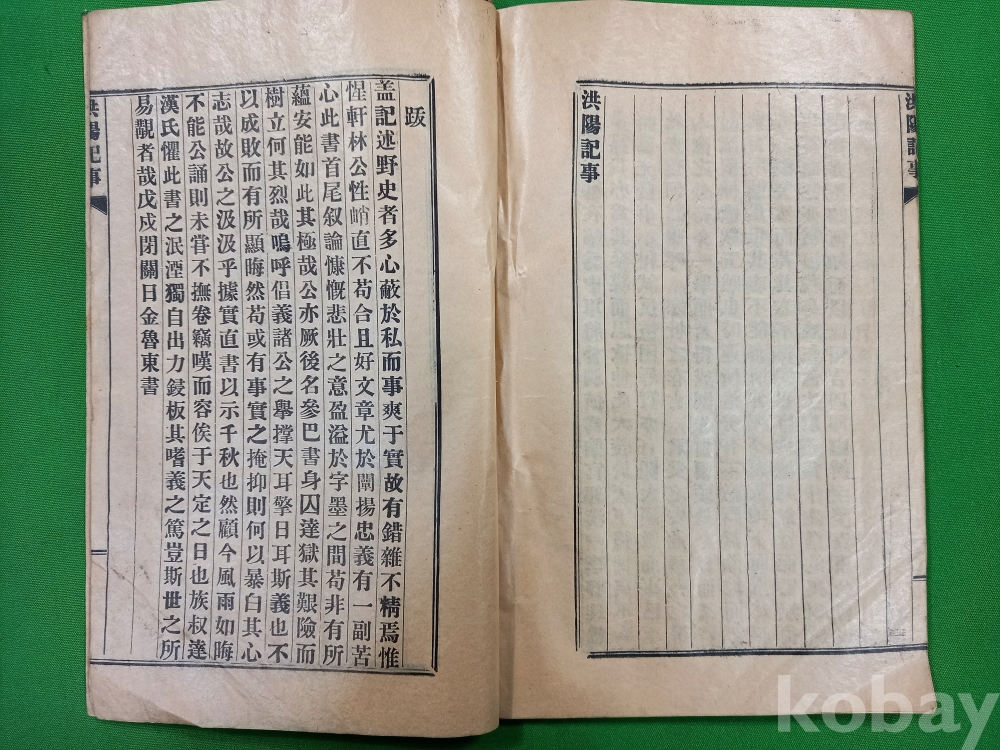 洪陽記事
洪陽記事
跋
盖記述野史者多心蔽於私而事爽于實故有錯雜不精焉惟
惺軒林公性峭直不苟合且好文章尤於闡揚忠義有一副苦
心此書首尾叙論慷慨悲壯之意盈溢於字墨之間苟非有所
蘊安能如此其極哉公亦厥後名參巴書身囚達獄其艱險而
樹立何其烈哉嗚呼倡義諸公之舉撑天耳擎日耳斯義也不
以成敗而有所顯晦然苟或有事實之掩抑則何以暴白其心
志哉故公之汲汲乎據實直書以示千秋也然顧今風雨如晦
不能公誦則未甞不撫卷竊嘆而容俟于天定之日也族叔達
漢氏懼此書之泯湮獨自出力鋟板其嗜義之篤豈斯世之所
易覯者哉戊戍閉關日金魯東書
洪陽記事
kobay